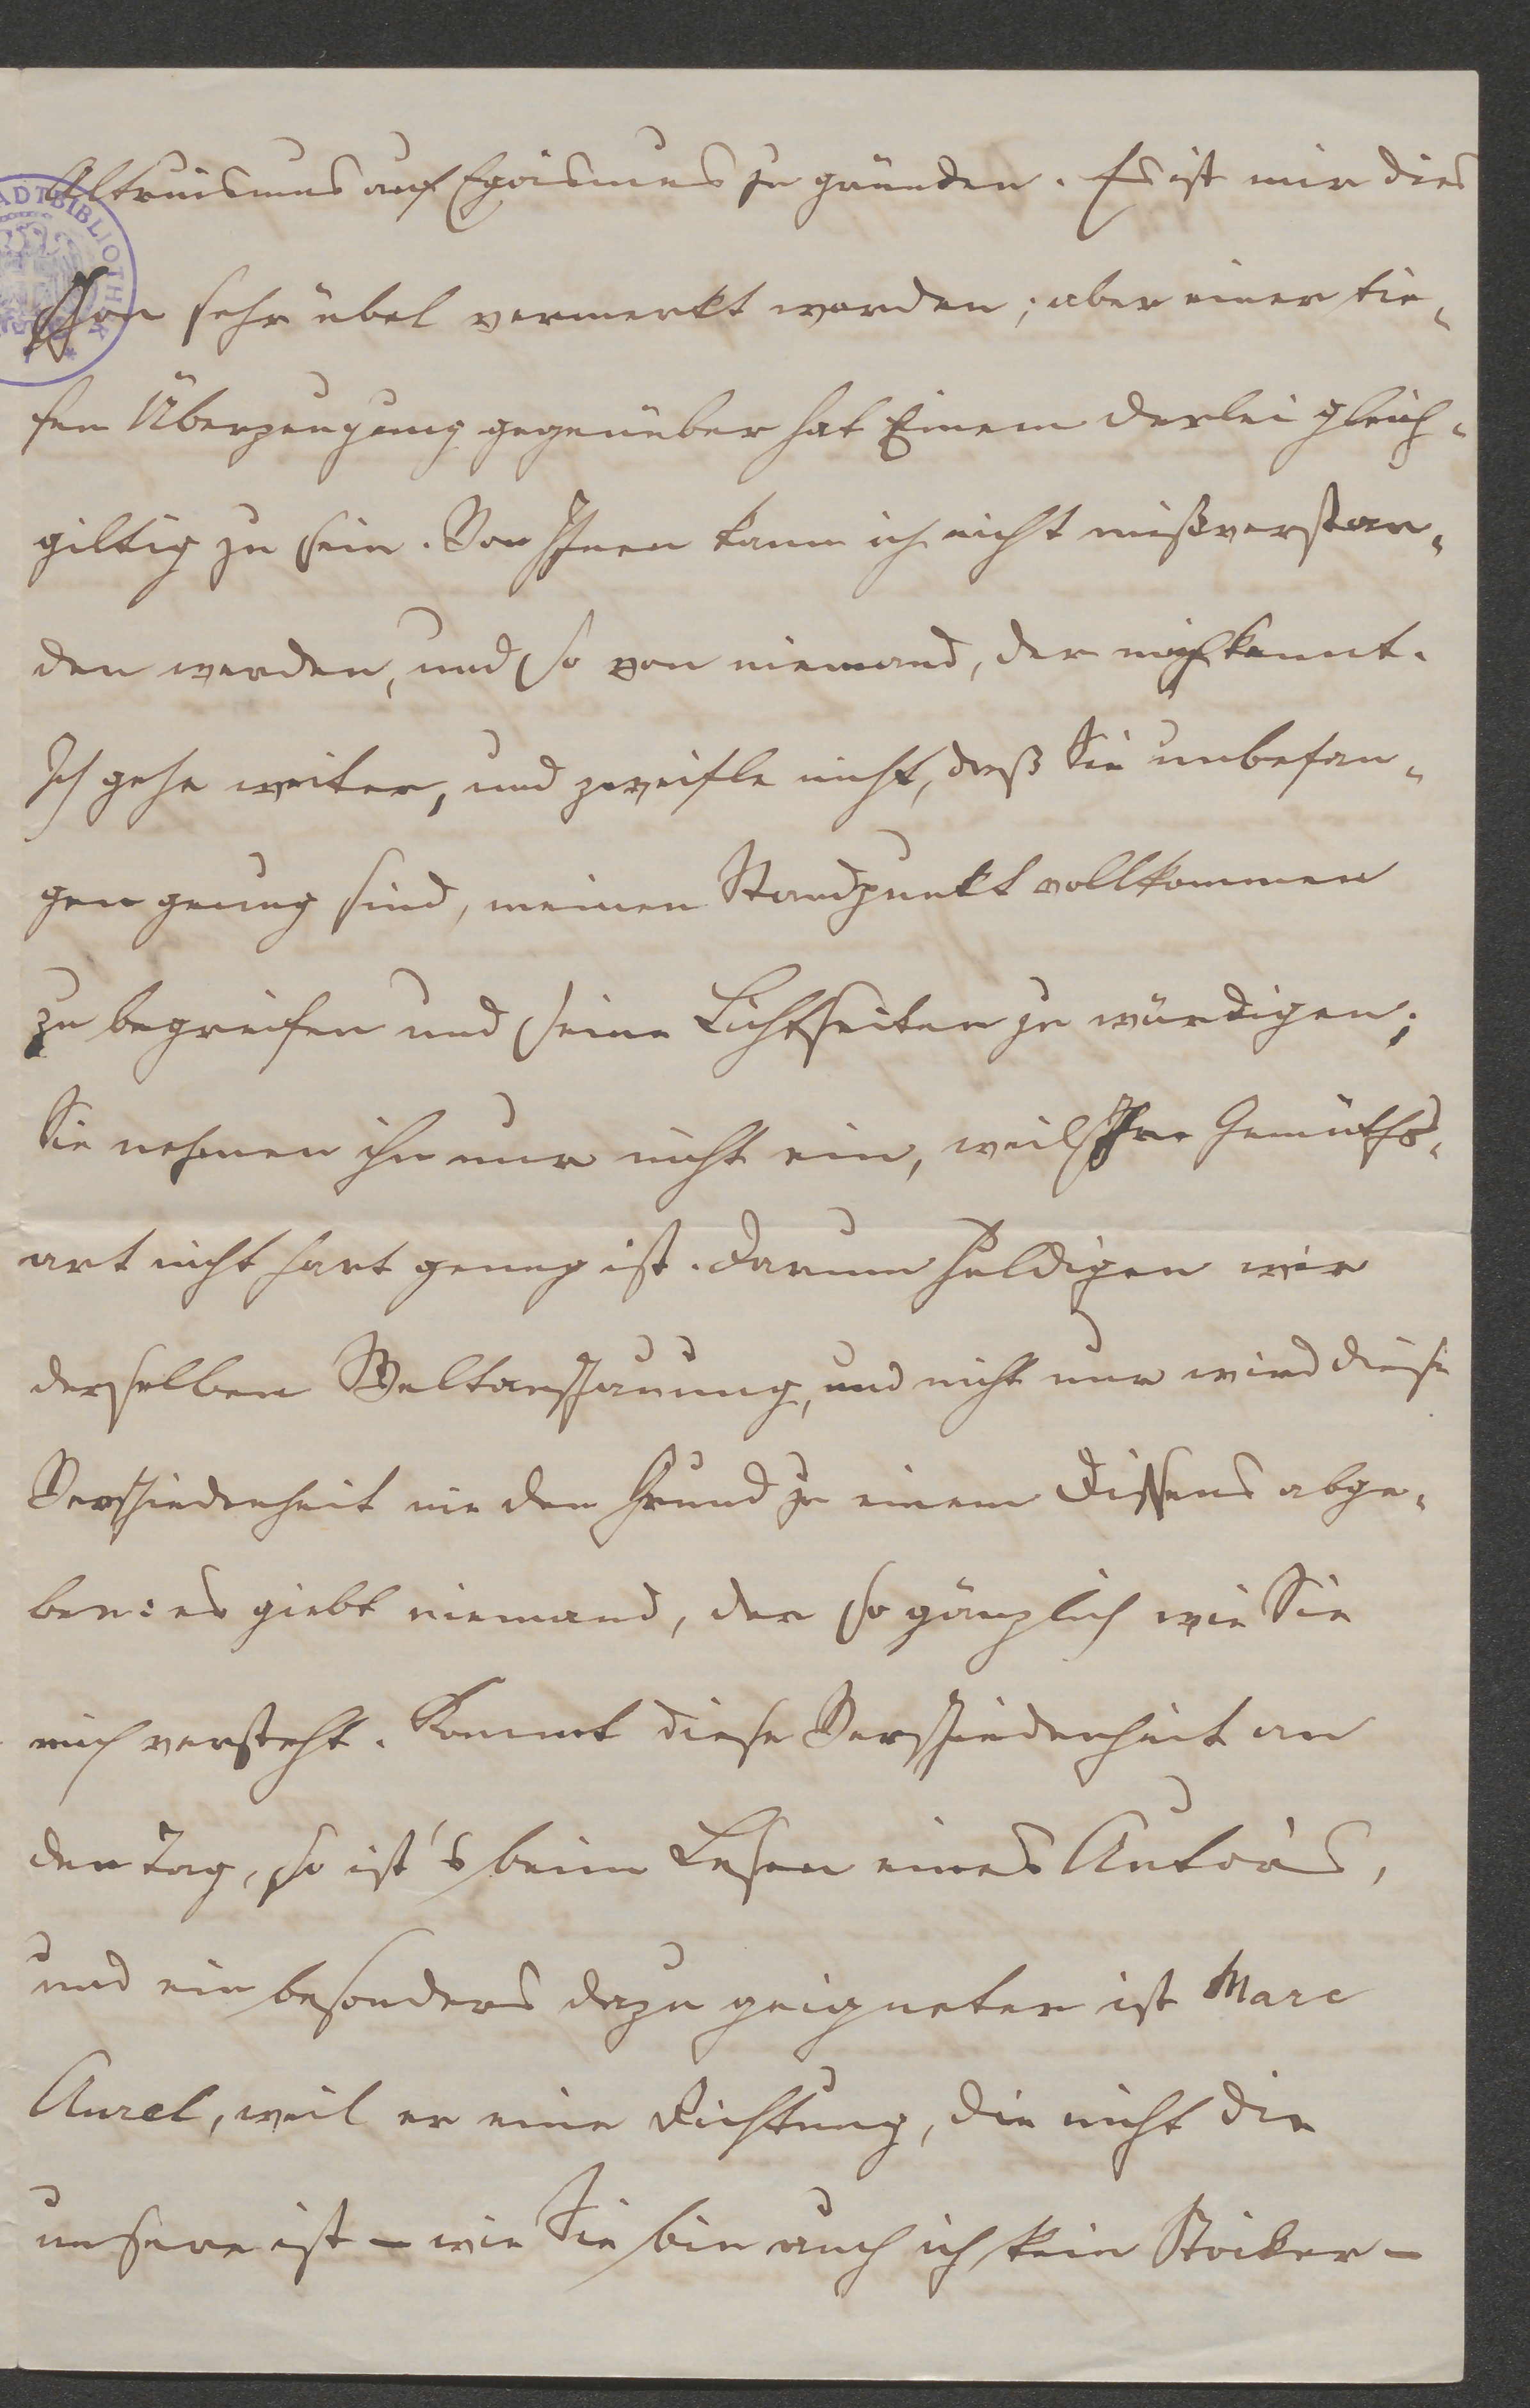 Altruismus auf Egoismus zu gründen. Es ist mir dies
schon sehr übel vermerkt worden; aber einer tie-
fen Überzeugung gegenüber hat Einem derlei gleich-
giltig zu sein. Von Ihnen kann ich nicht mißverstan-
den werden, und so von niemand, der mich kennt.
Ich gehe weiter, und zweifle nicht, daß Sie unbefan-
gen genug sind, meinen Standpunkt vollkommen
zu begreifen und seine Lichtseiten zu würdigen;
Sie nehmen ihn nur nicht ein, weil Ihre Gemüths-
art nicht hart genug ist. Darum huldigen wir
derselben Weltanschauung, und nicht nur wird diese
Verschiedenheit nie den Grund zu einem Dissens abge-
ben: es giebt niemand, der so gänzlich wie Sie
mich versteht. Kommt diese Verschiedenheit an
den Tag, so ist's beim Lesen eines Autors,
und ein besonders dazu geigneter ist Marc
Aurel, weil er eine Richtung, die nicht die
unsere ist – wie Sie bin auch ich kein Stoiker –
STADTBIBLIOTHEK